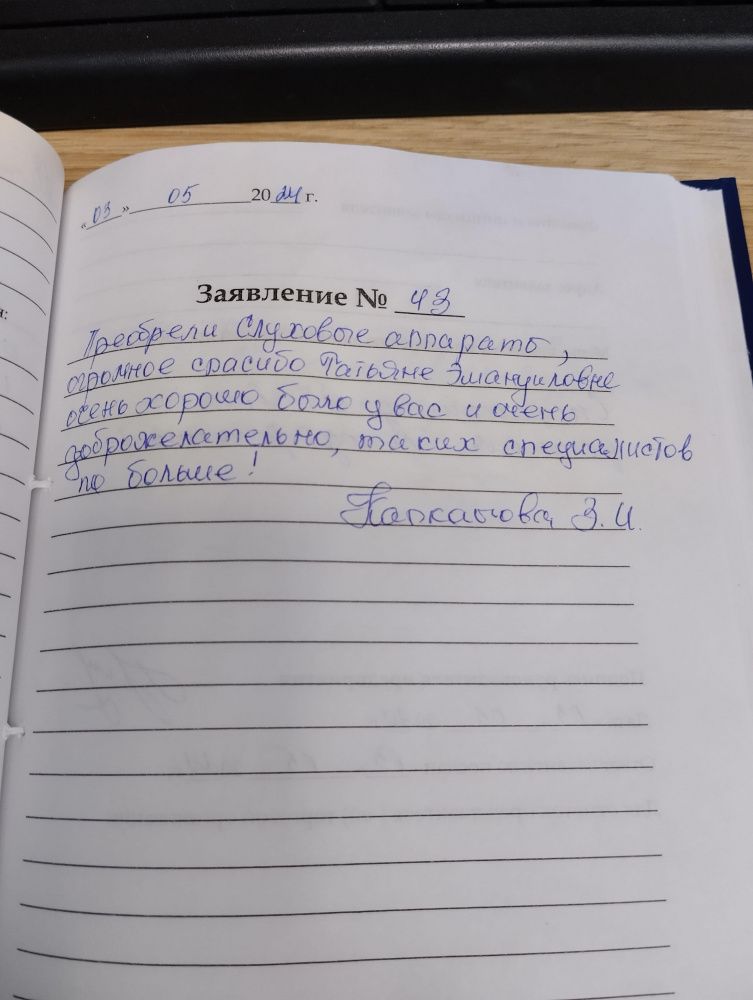 «03» 05 2024 г.
Заявление № 43
Преобрели Слуховые аппараты,
огромное спасибо Татьяне Эмануиловне
очень хорошо было у вас и очень
доброжелательно, таких специалистов
по больше!
З. И.